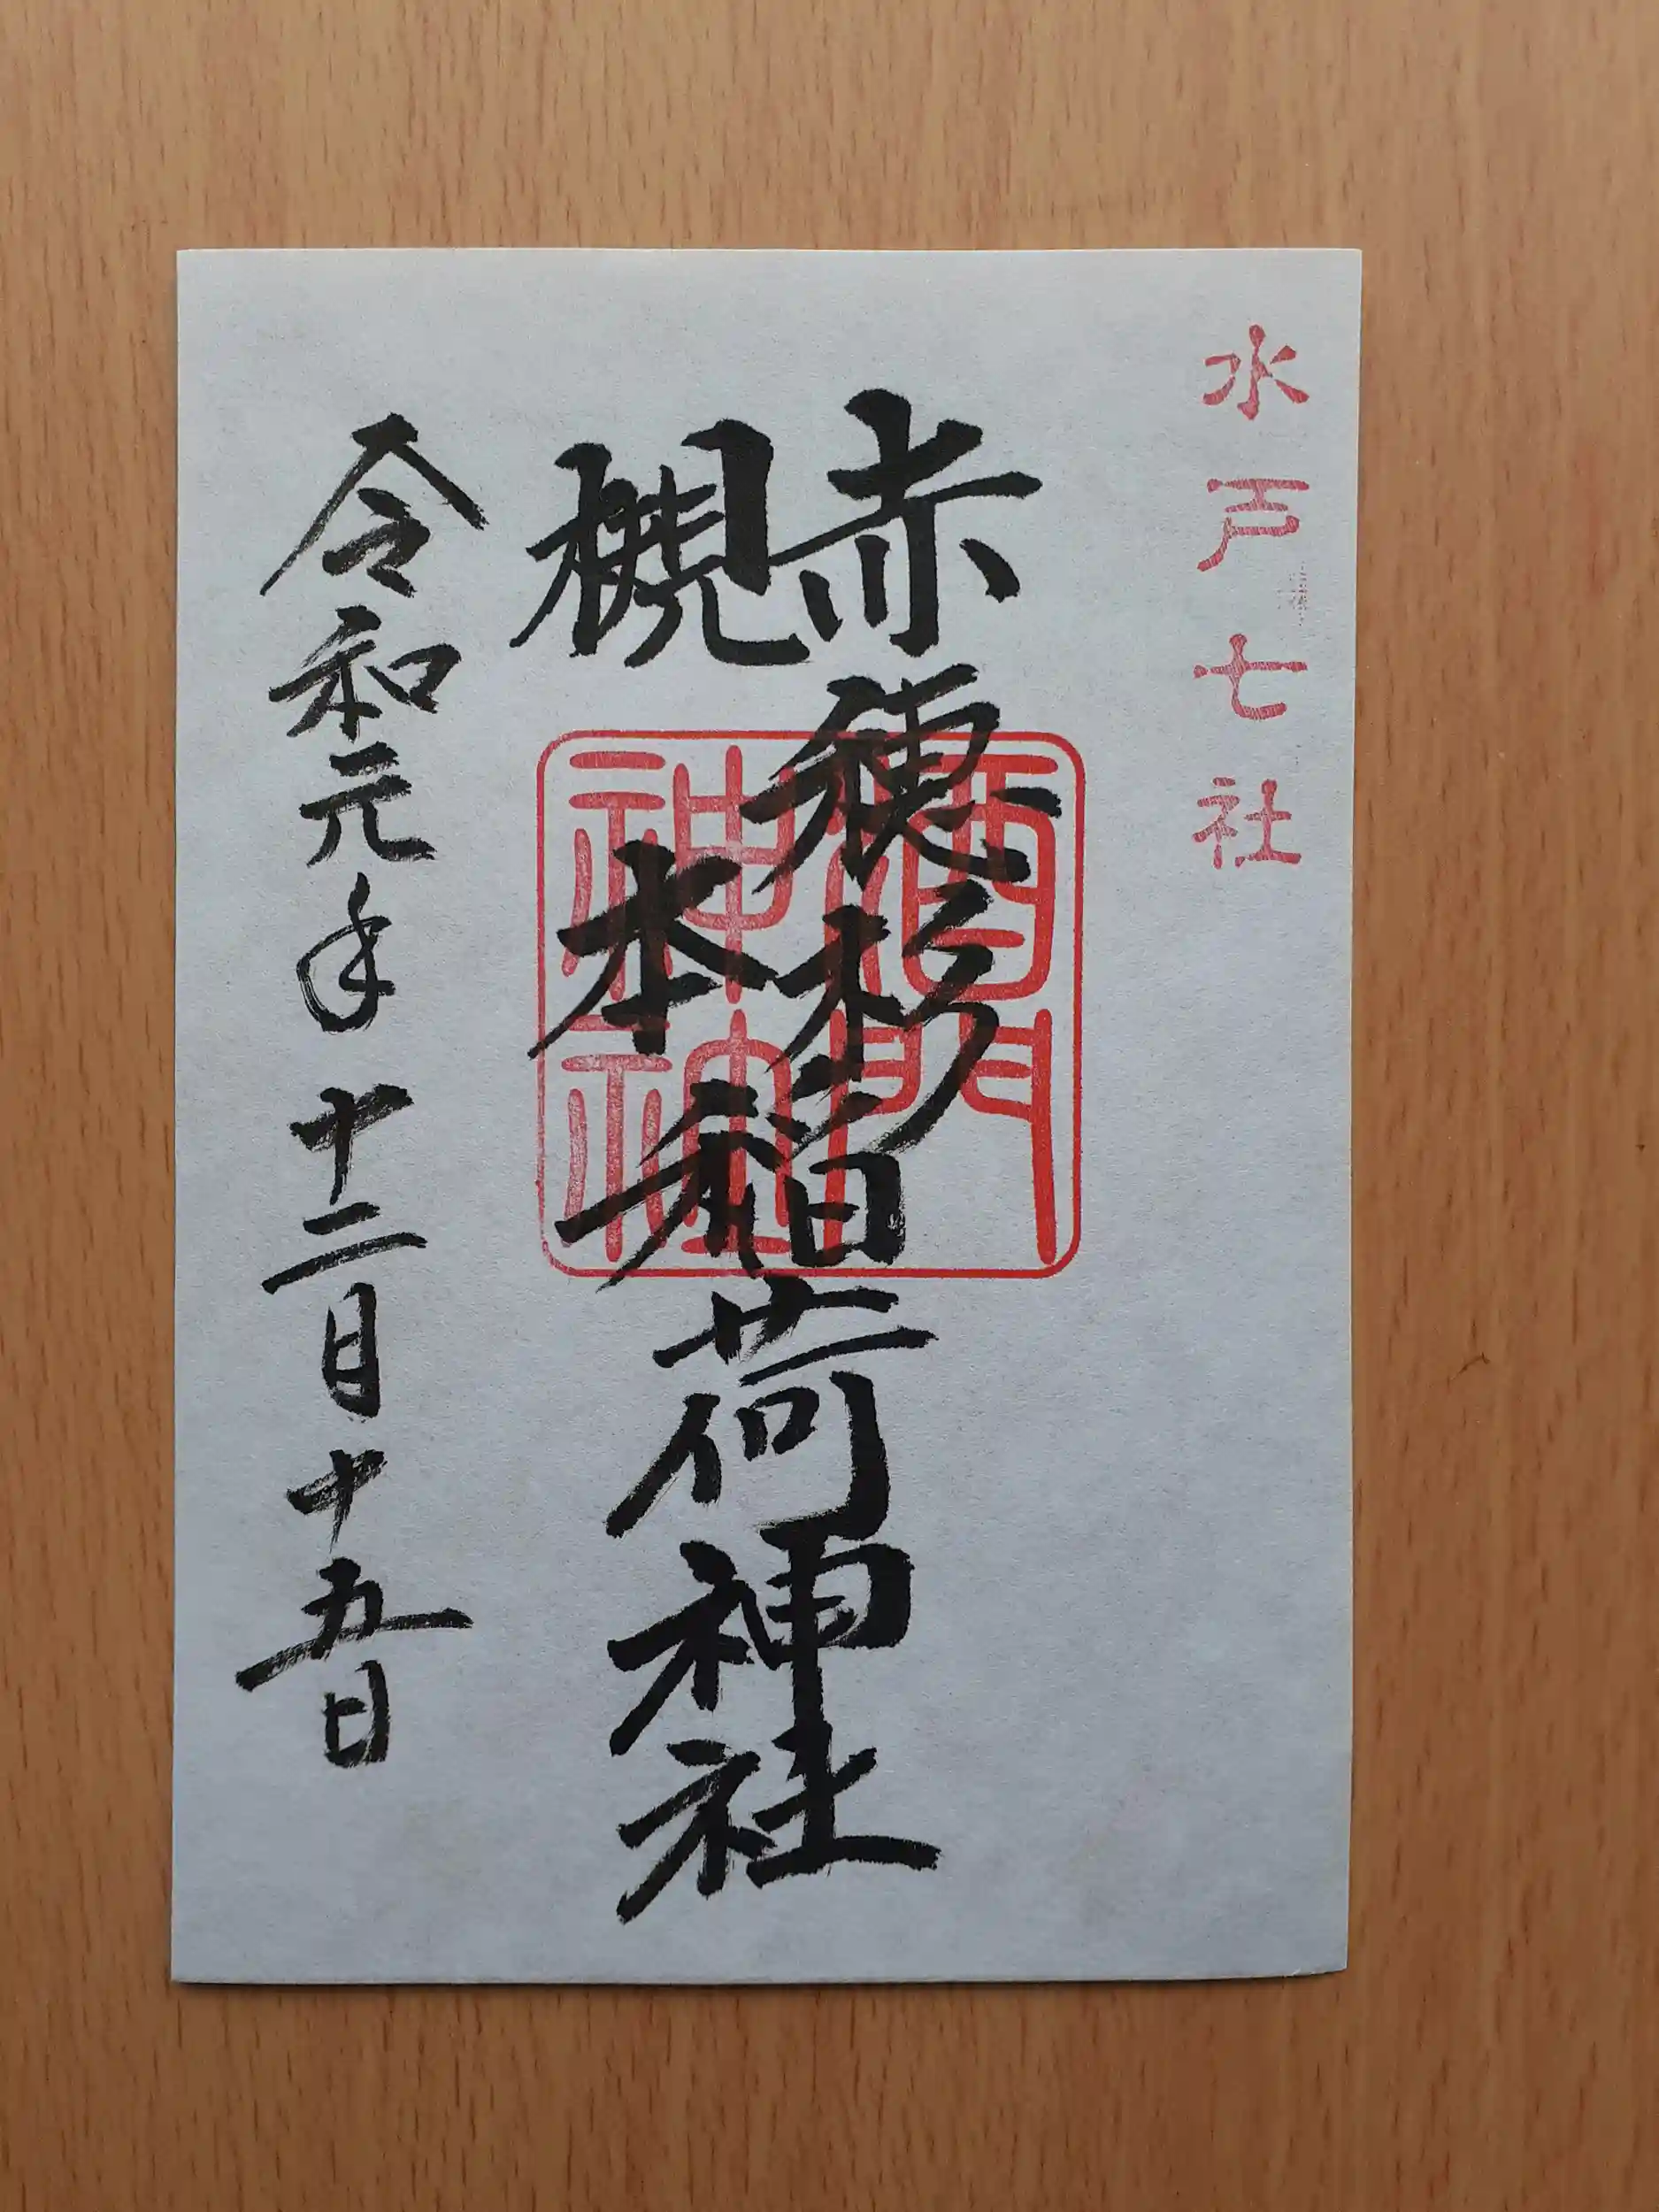 水戸七社
赤穂杉
槻本
稲荷神社
酒門
神社
令和元年十二月十五日